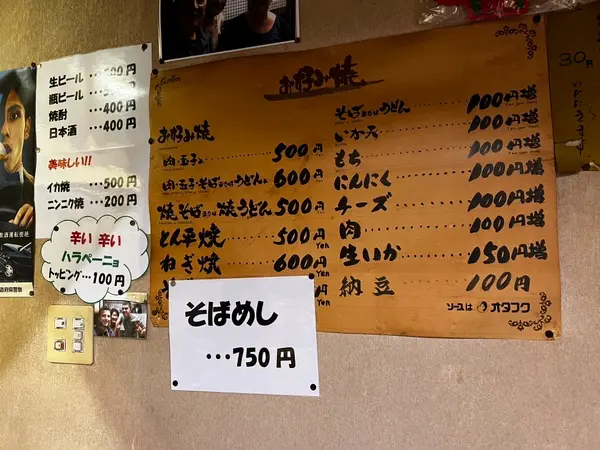 生ビール ・・・500円
瓶ビール ・・・500円
焼酎 ・・・400円
日本酒 ・・・400円
美味しい!!
イカ焼 ・・・500円
ニンニク焼 ・・・200円
辛い 辛い
ハラペーニョ
トッピング・・・100円
お好み焼
お好み焼
肉・玉子入 500円
肉・玉子・そば又はうどん入 600円
焼そば又は焼うどん 500円
とん平焼 500円 Yen
ねぎ焼 600円 Yen
円 Yen
そば又はうどん 100円増
いか天 100円増
もち 100円増
にんにく 100円増
チーズ 100円増
肉 100円増
生いか 150円増
納豆 100円
ソースは オタフク
そばめし
・・・750円
30円